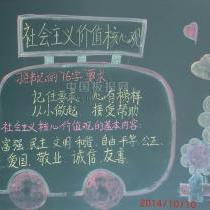 社会主义价值核心观
中国板报网
习书记的"16字"要求
记住要求 心有榜样
从小做起 接受帮助
社会主义核心价值观的基本内容
富强 民主 文明 和谐 自由 平等 公正
爱国 敬业 诚信 友善
2014/10/10